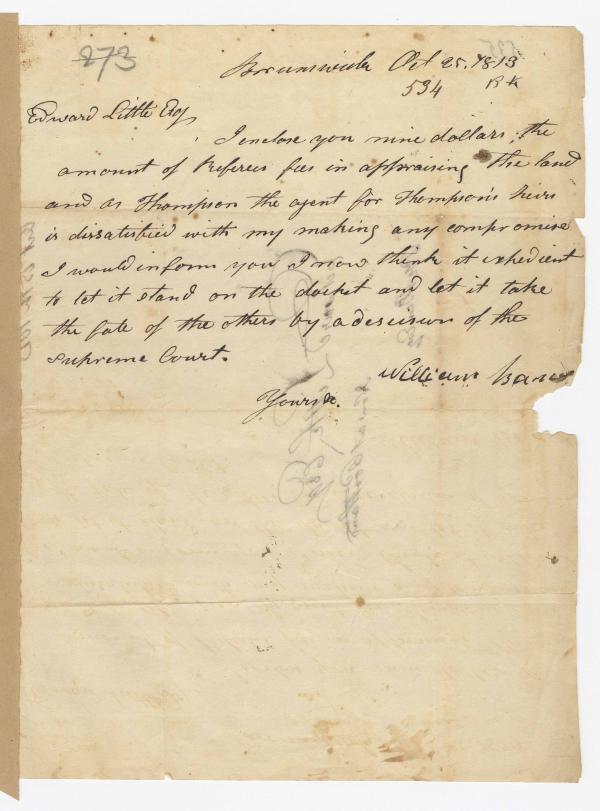 273
Brunswick Oct 25. 1813
534 BK
Edward Little Esq
I enclose you nine dollars, the
amount of Referees fees in appraising the land
and as Thompson the agent for Thompson's heirs
is dissatisfied with my making any compromise
I would inform you I now think it expedient
to let it stand on the docket and let it take
the fate of the others by a descision of the
Supreme Court.
William
Yours &.